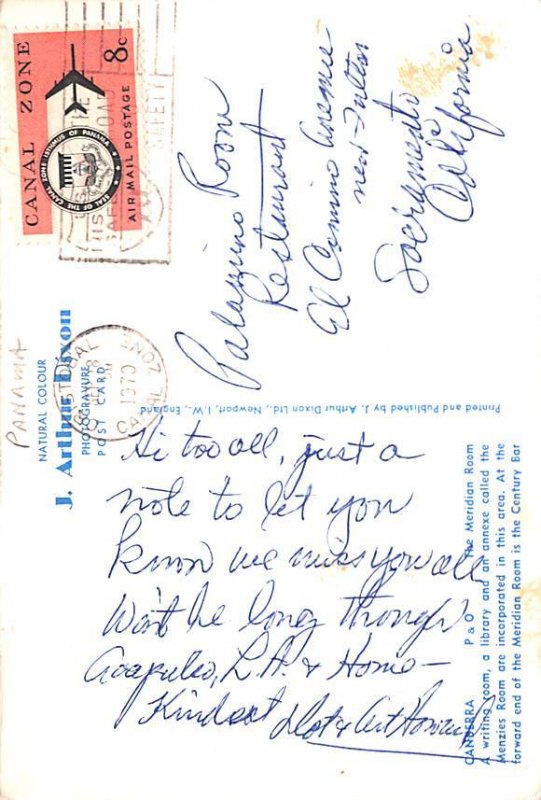 CANAL ZONE
8c
AIR MAIL POSTAGE
SEAL OF THE CANAL ZONE ISTHMUS OF PANAMA
SAFETY
CRISTOBAL
1970
CANAL ZONE
PANAMA
NATURAL COLOUR
J. Arthur Dixon
PHOTOGRAVURE
POST CARD
Palamino Room
Restaurant
El Camino Avenue
near Fulton
Sacramento
California
Printed and Published by J. Arthur Dixon Ltd., Newport, I.W., England
Hi too all, just a
note to let you
know we miss you all
Won't be long though
Acapulco, L.A. & Home –
Kindest Dot & Art
CANBERRA P & O The Meridian Room
A writing room, a library and an annexe called the
Menzies Room are incorporated in this area. At the
forward end of the Meridian Room is the Century Bar